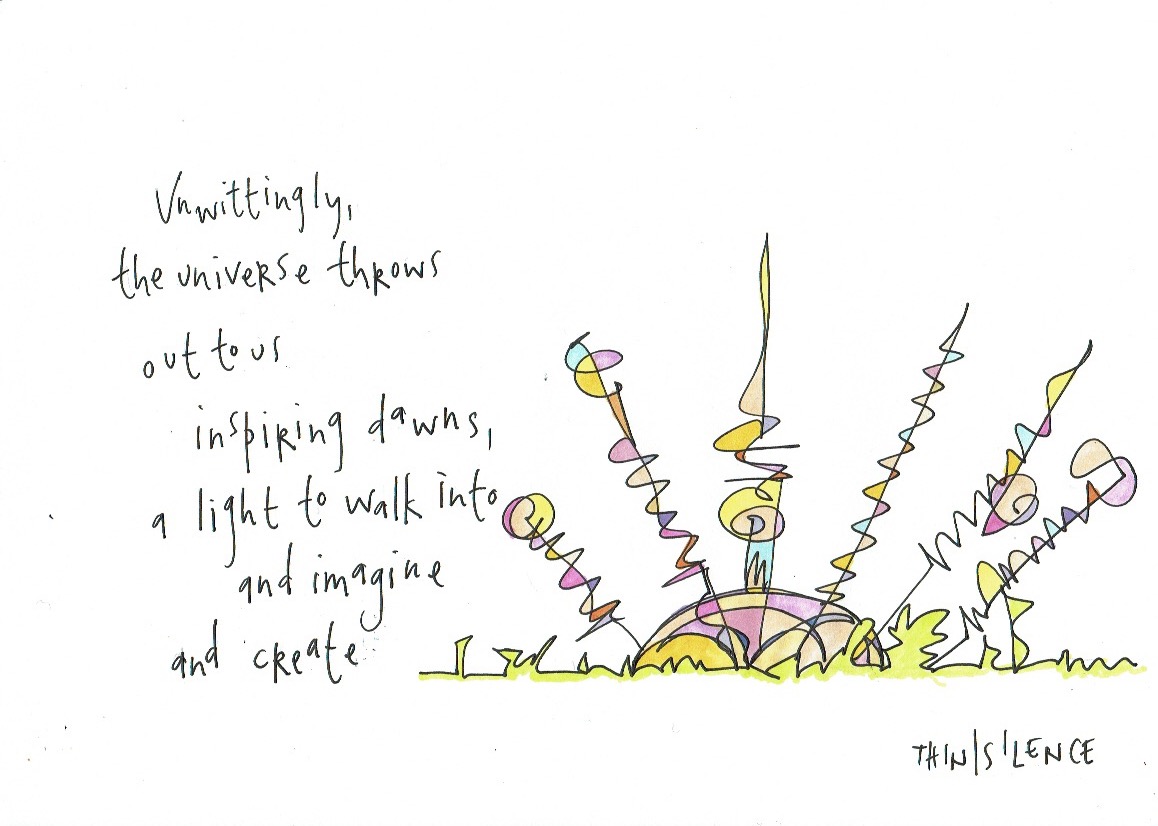 Unwittingly,
the universe throws
out to us
inspiring dawns,
a light to walk into
and imagine
and create
THIN|SILENCE